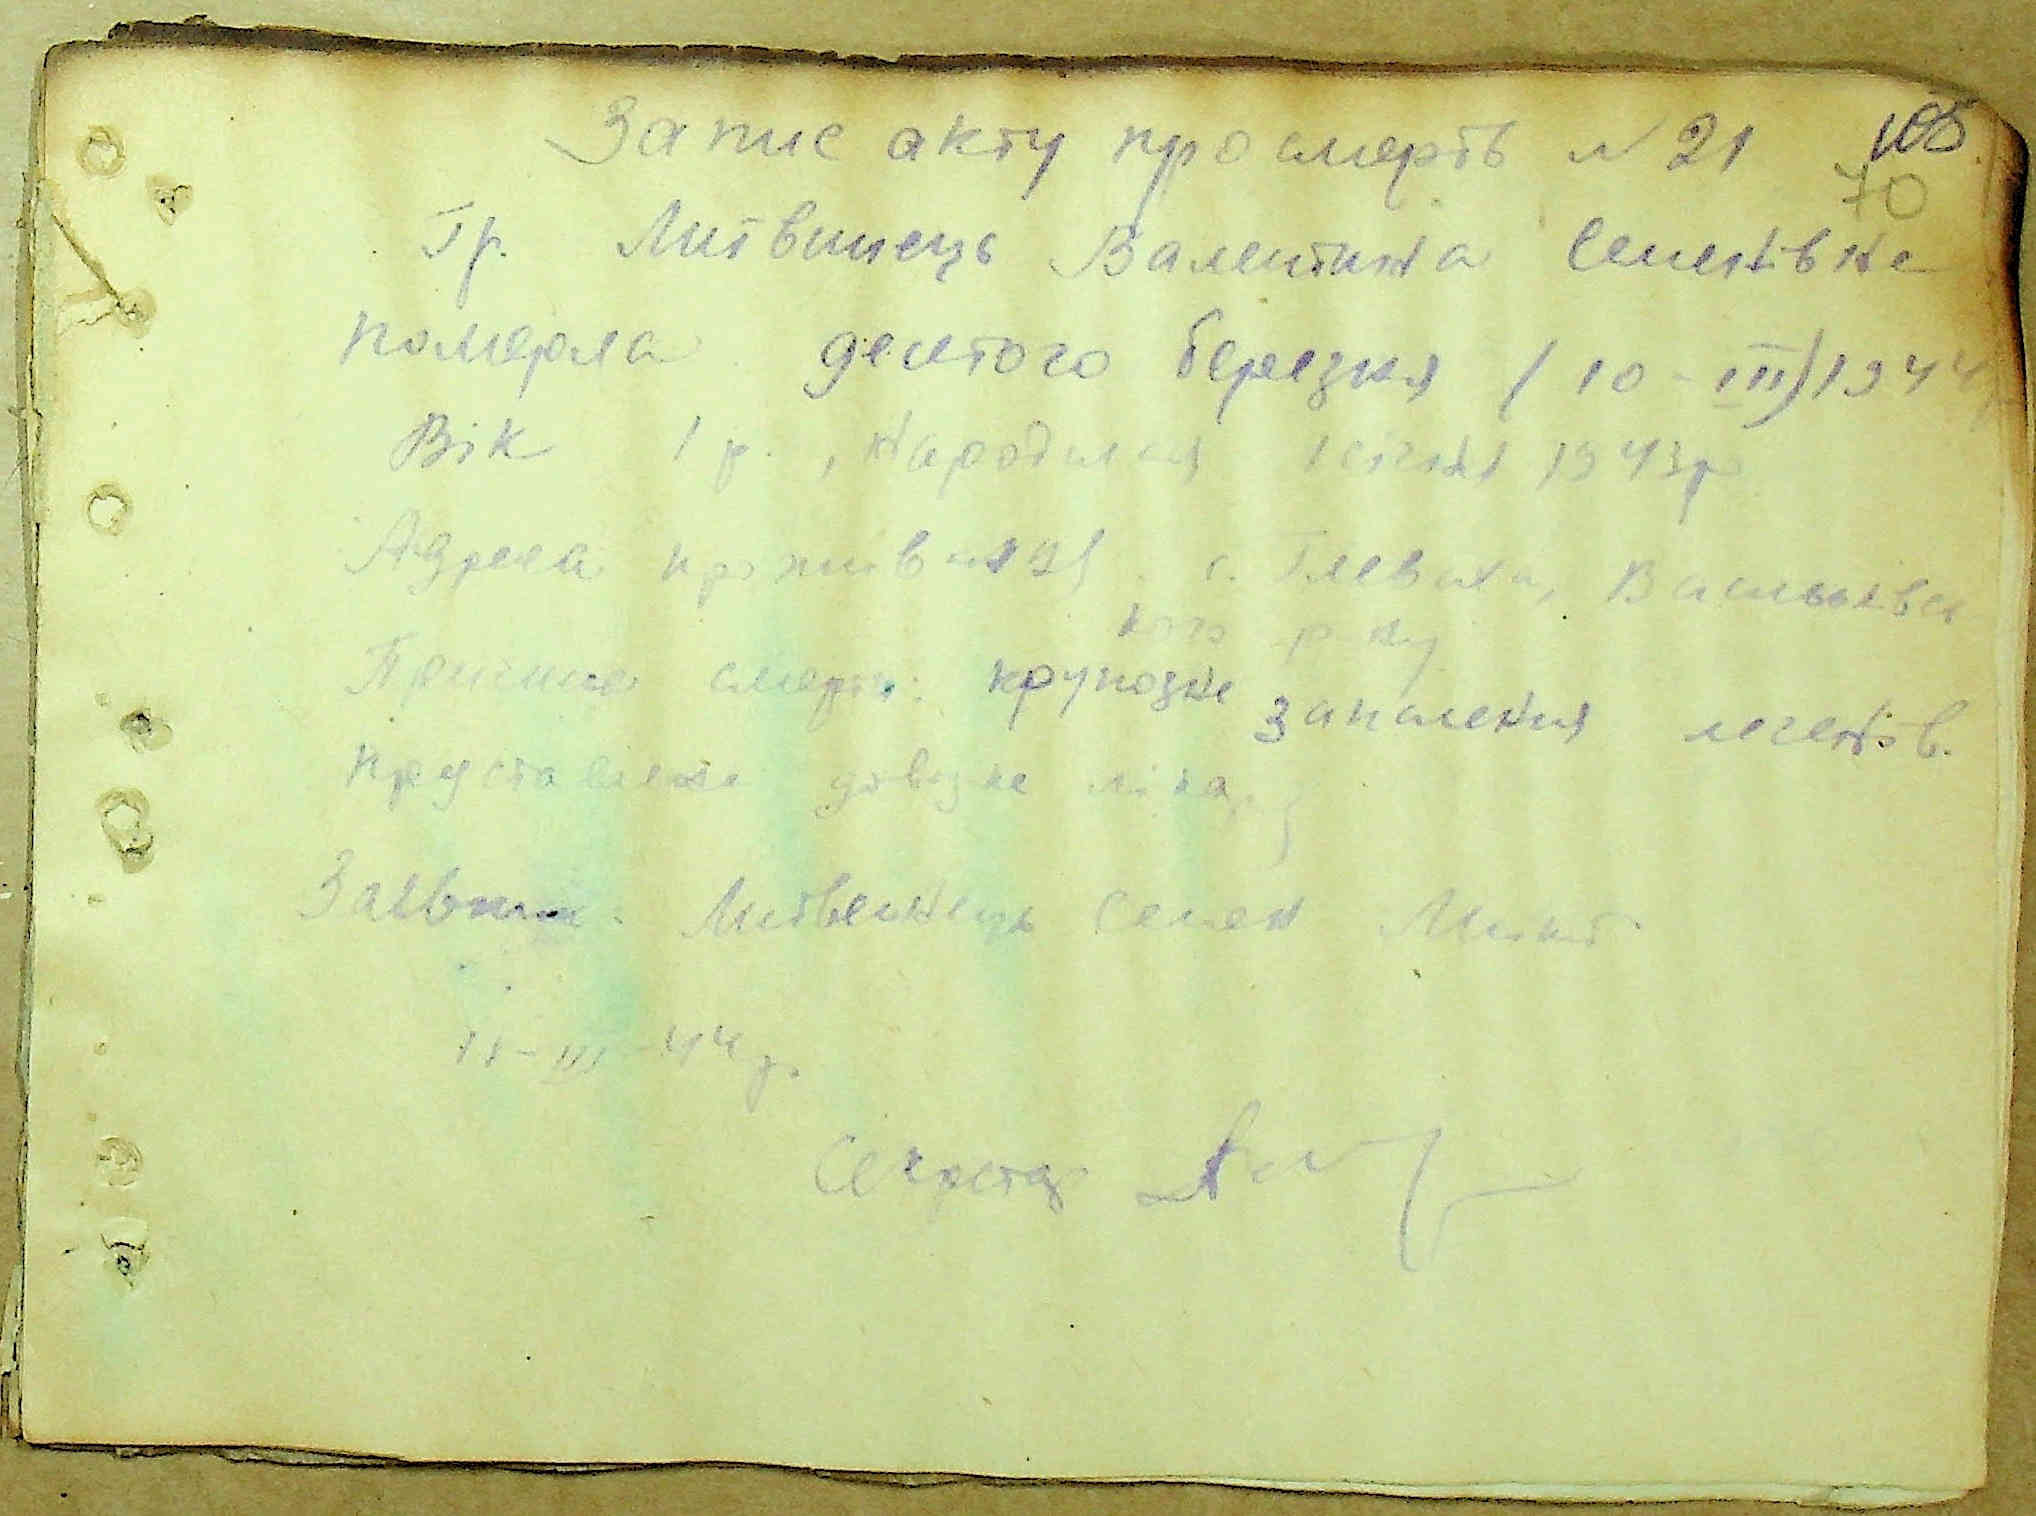 Запис акту про смерть № 21
70
Гр. Литвинець Валентина Семенівна
померла десятого березня (10-III) 1944
Вік 1 р., народилась 1 січня 1943р
Адреса проживання с. Глеваха, Васильківсь
кого р-ну
Причина смерти: крупозне запалення легенів.
представлена довідка лікаря
Заявник: Литвинець Семен
11-III-44 р.
Секретар